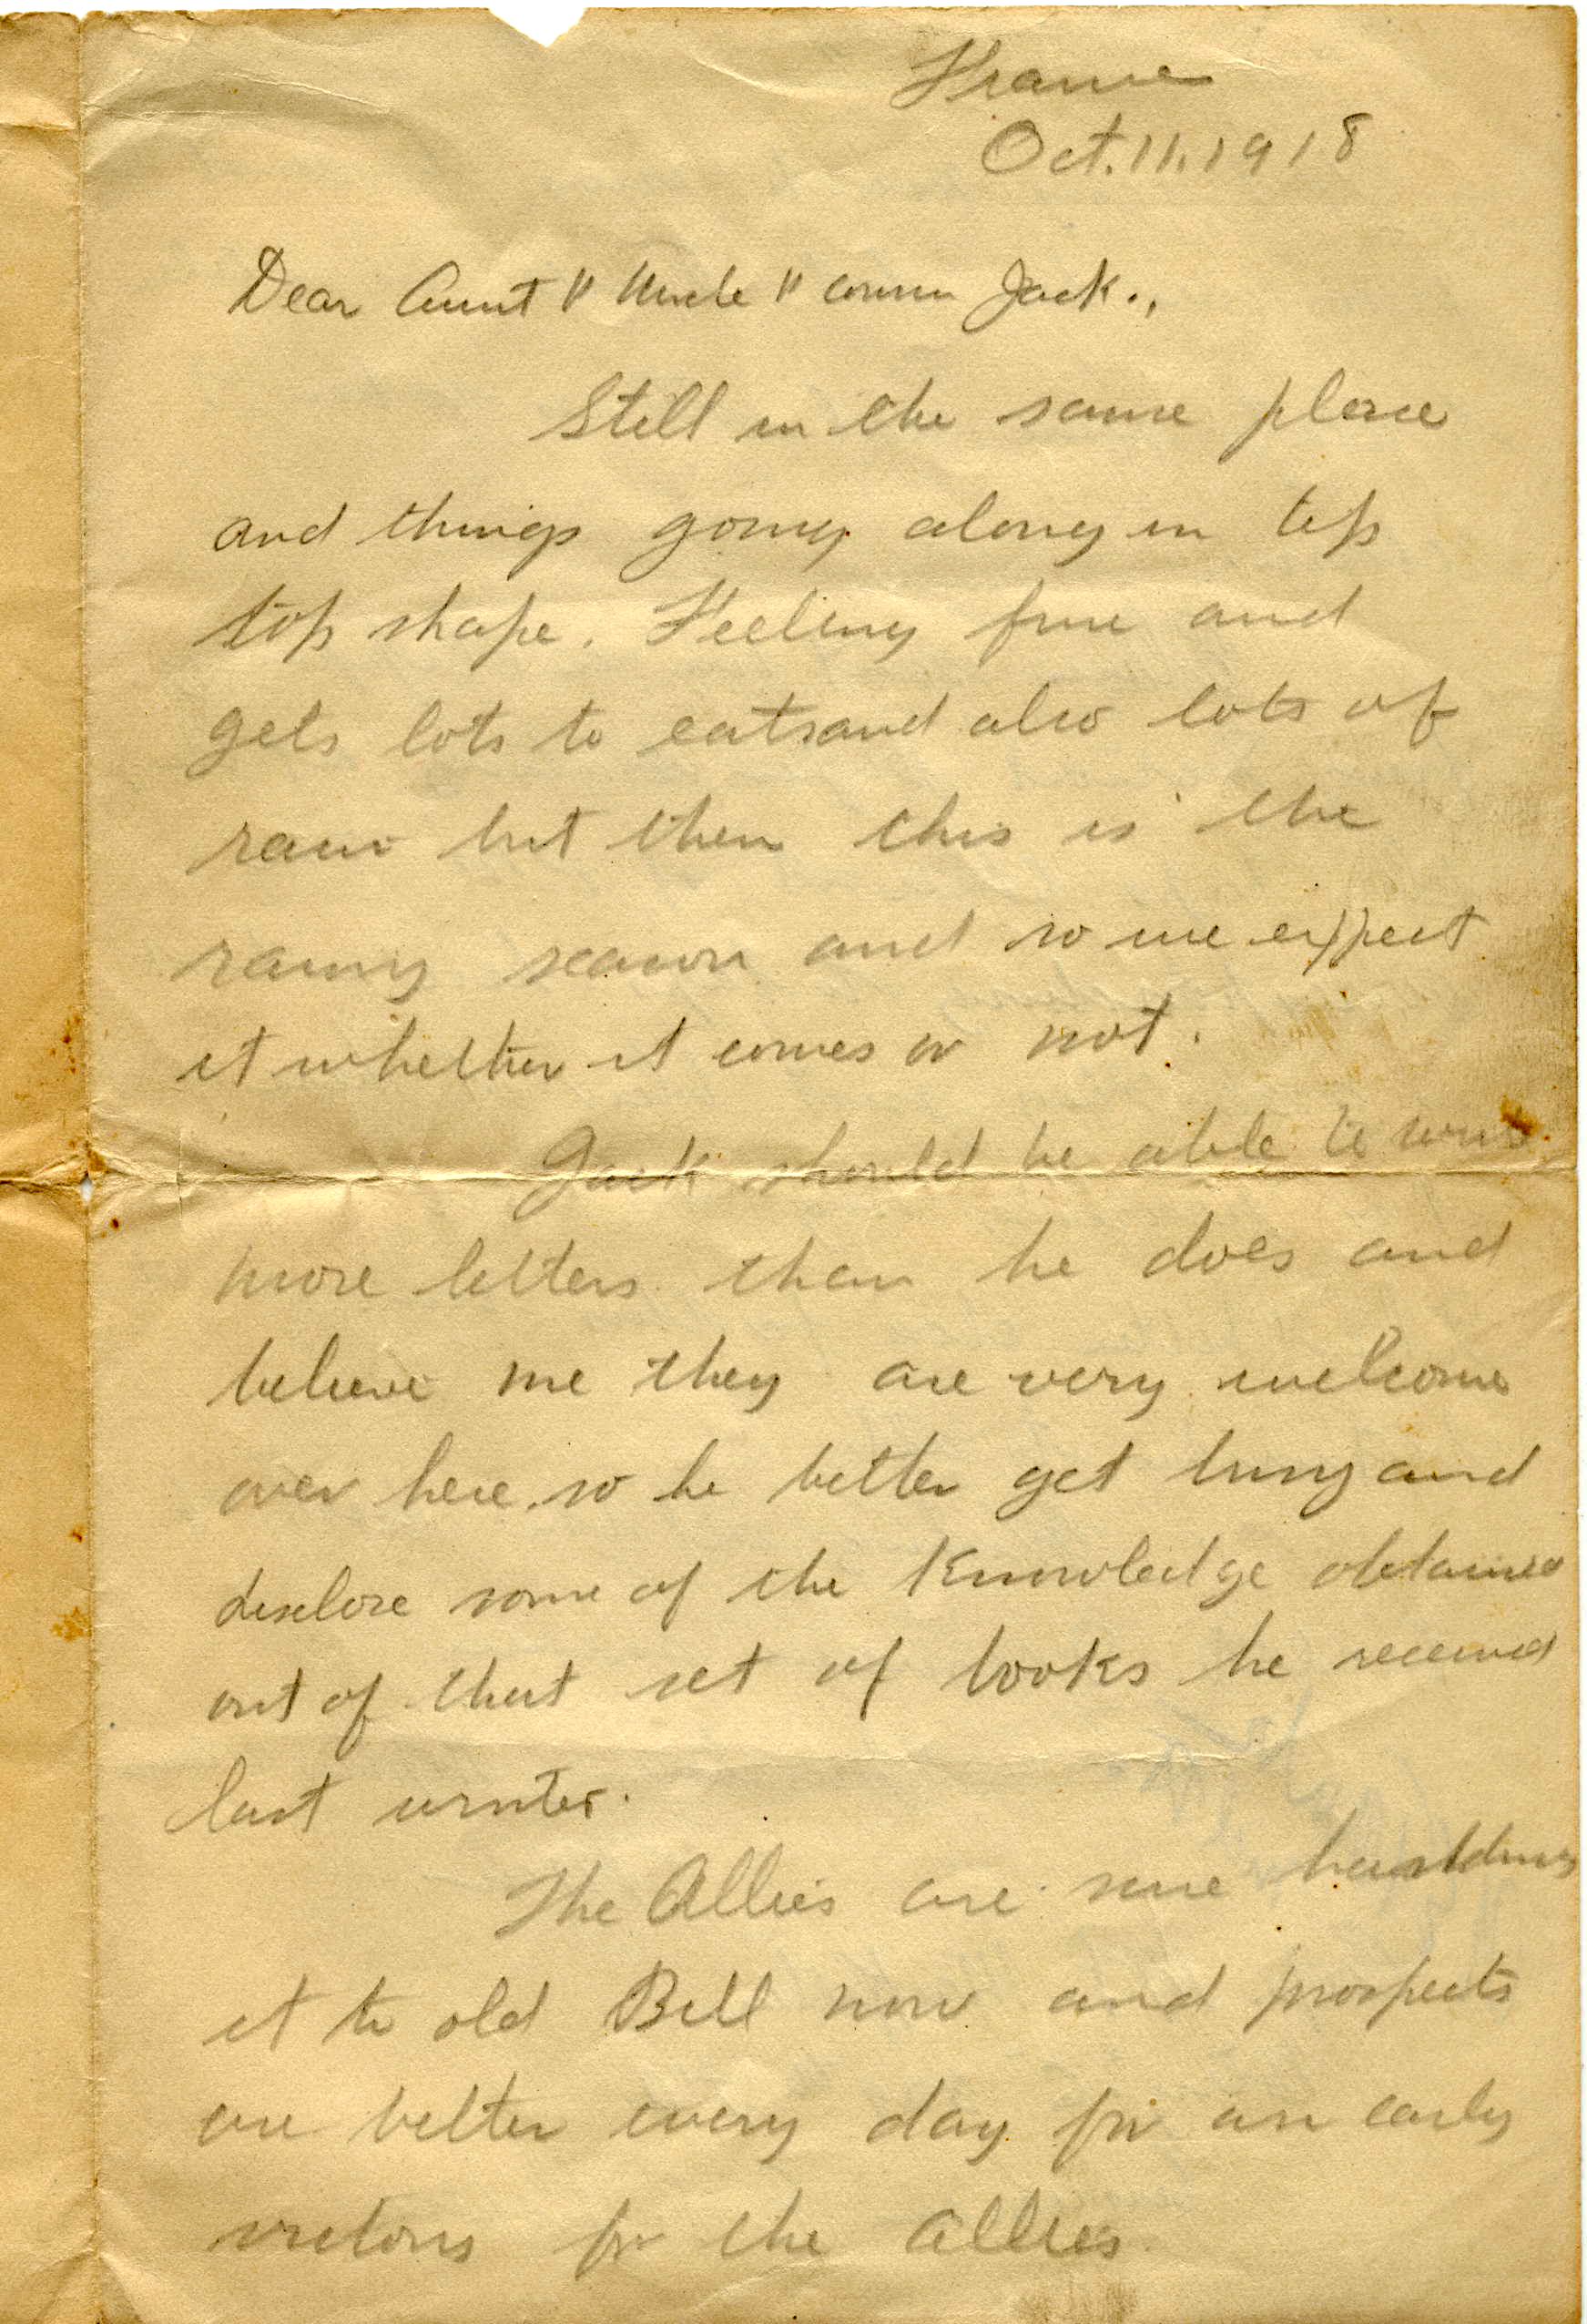 France
Oct. 11. 1918
Dear Aunt " Uncle " Cousin Jack.,
Still in the same place
and things going along in tip
top shape. Feeling fine and
gets lots to eat and also lots of
rain but then this is the
rainy season and so we expect
it whether it comes or not.
Jack should be able to write
more letters than he does and
believe me they are very welcome
over here. so he better get busy and
disclose some of the Knowledge obtained
out of that set of books he received
last winter.
The Allies are sure handing
it to old Bill now and prospects
are better every day for an early
victory for the Allies